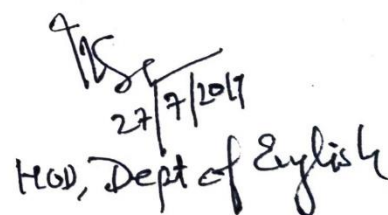 27/7/2017
HOD, Dept of English